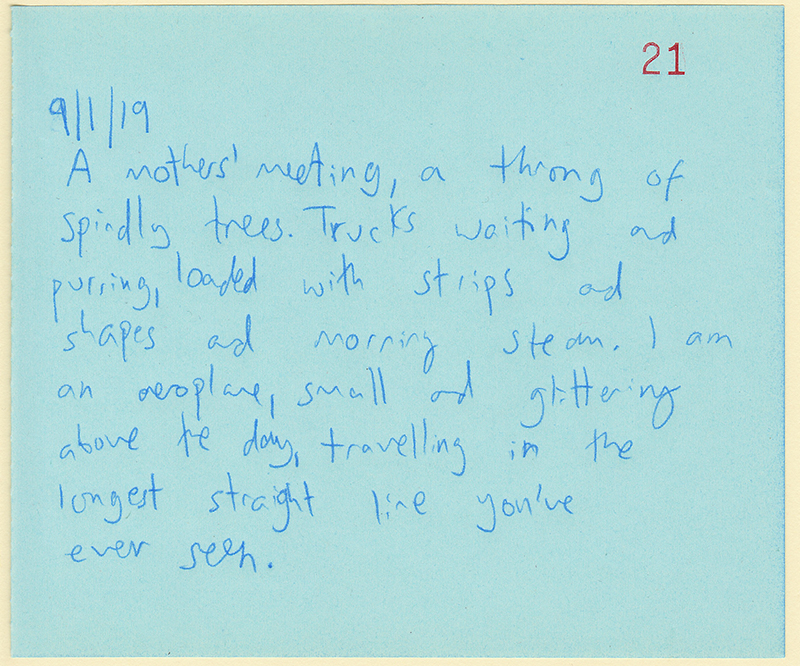 21
9/1/19
A mothers' meeting, a throng of
spindly trees. Trucks waiting and
purring, loaded with strips and
shapes and morning steam. I am
an aeroplane, small and glittering
above the day, travelling in the
longest straight line you've
ever seen.